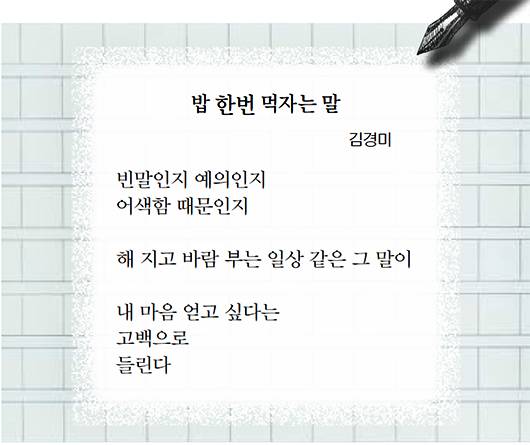 밥 한번 먹자는 말
김경미
빈말인지 예의인지
어색함 때문인지
해 지고 바람 부는 일상 같은 그 말이
내 마음 얻고 싶다는
고백으로
들린다